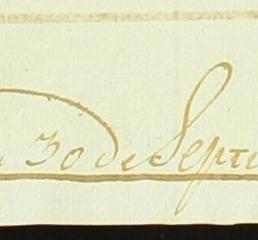 30 de Septi